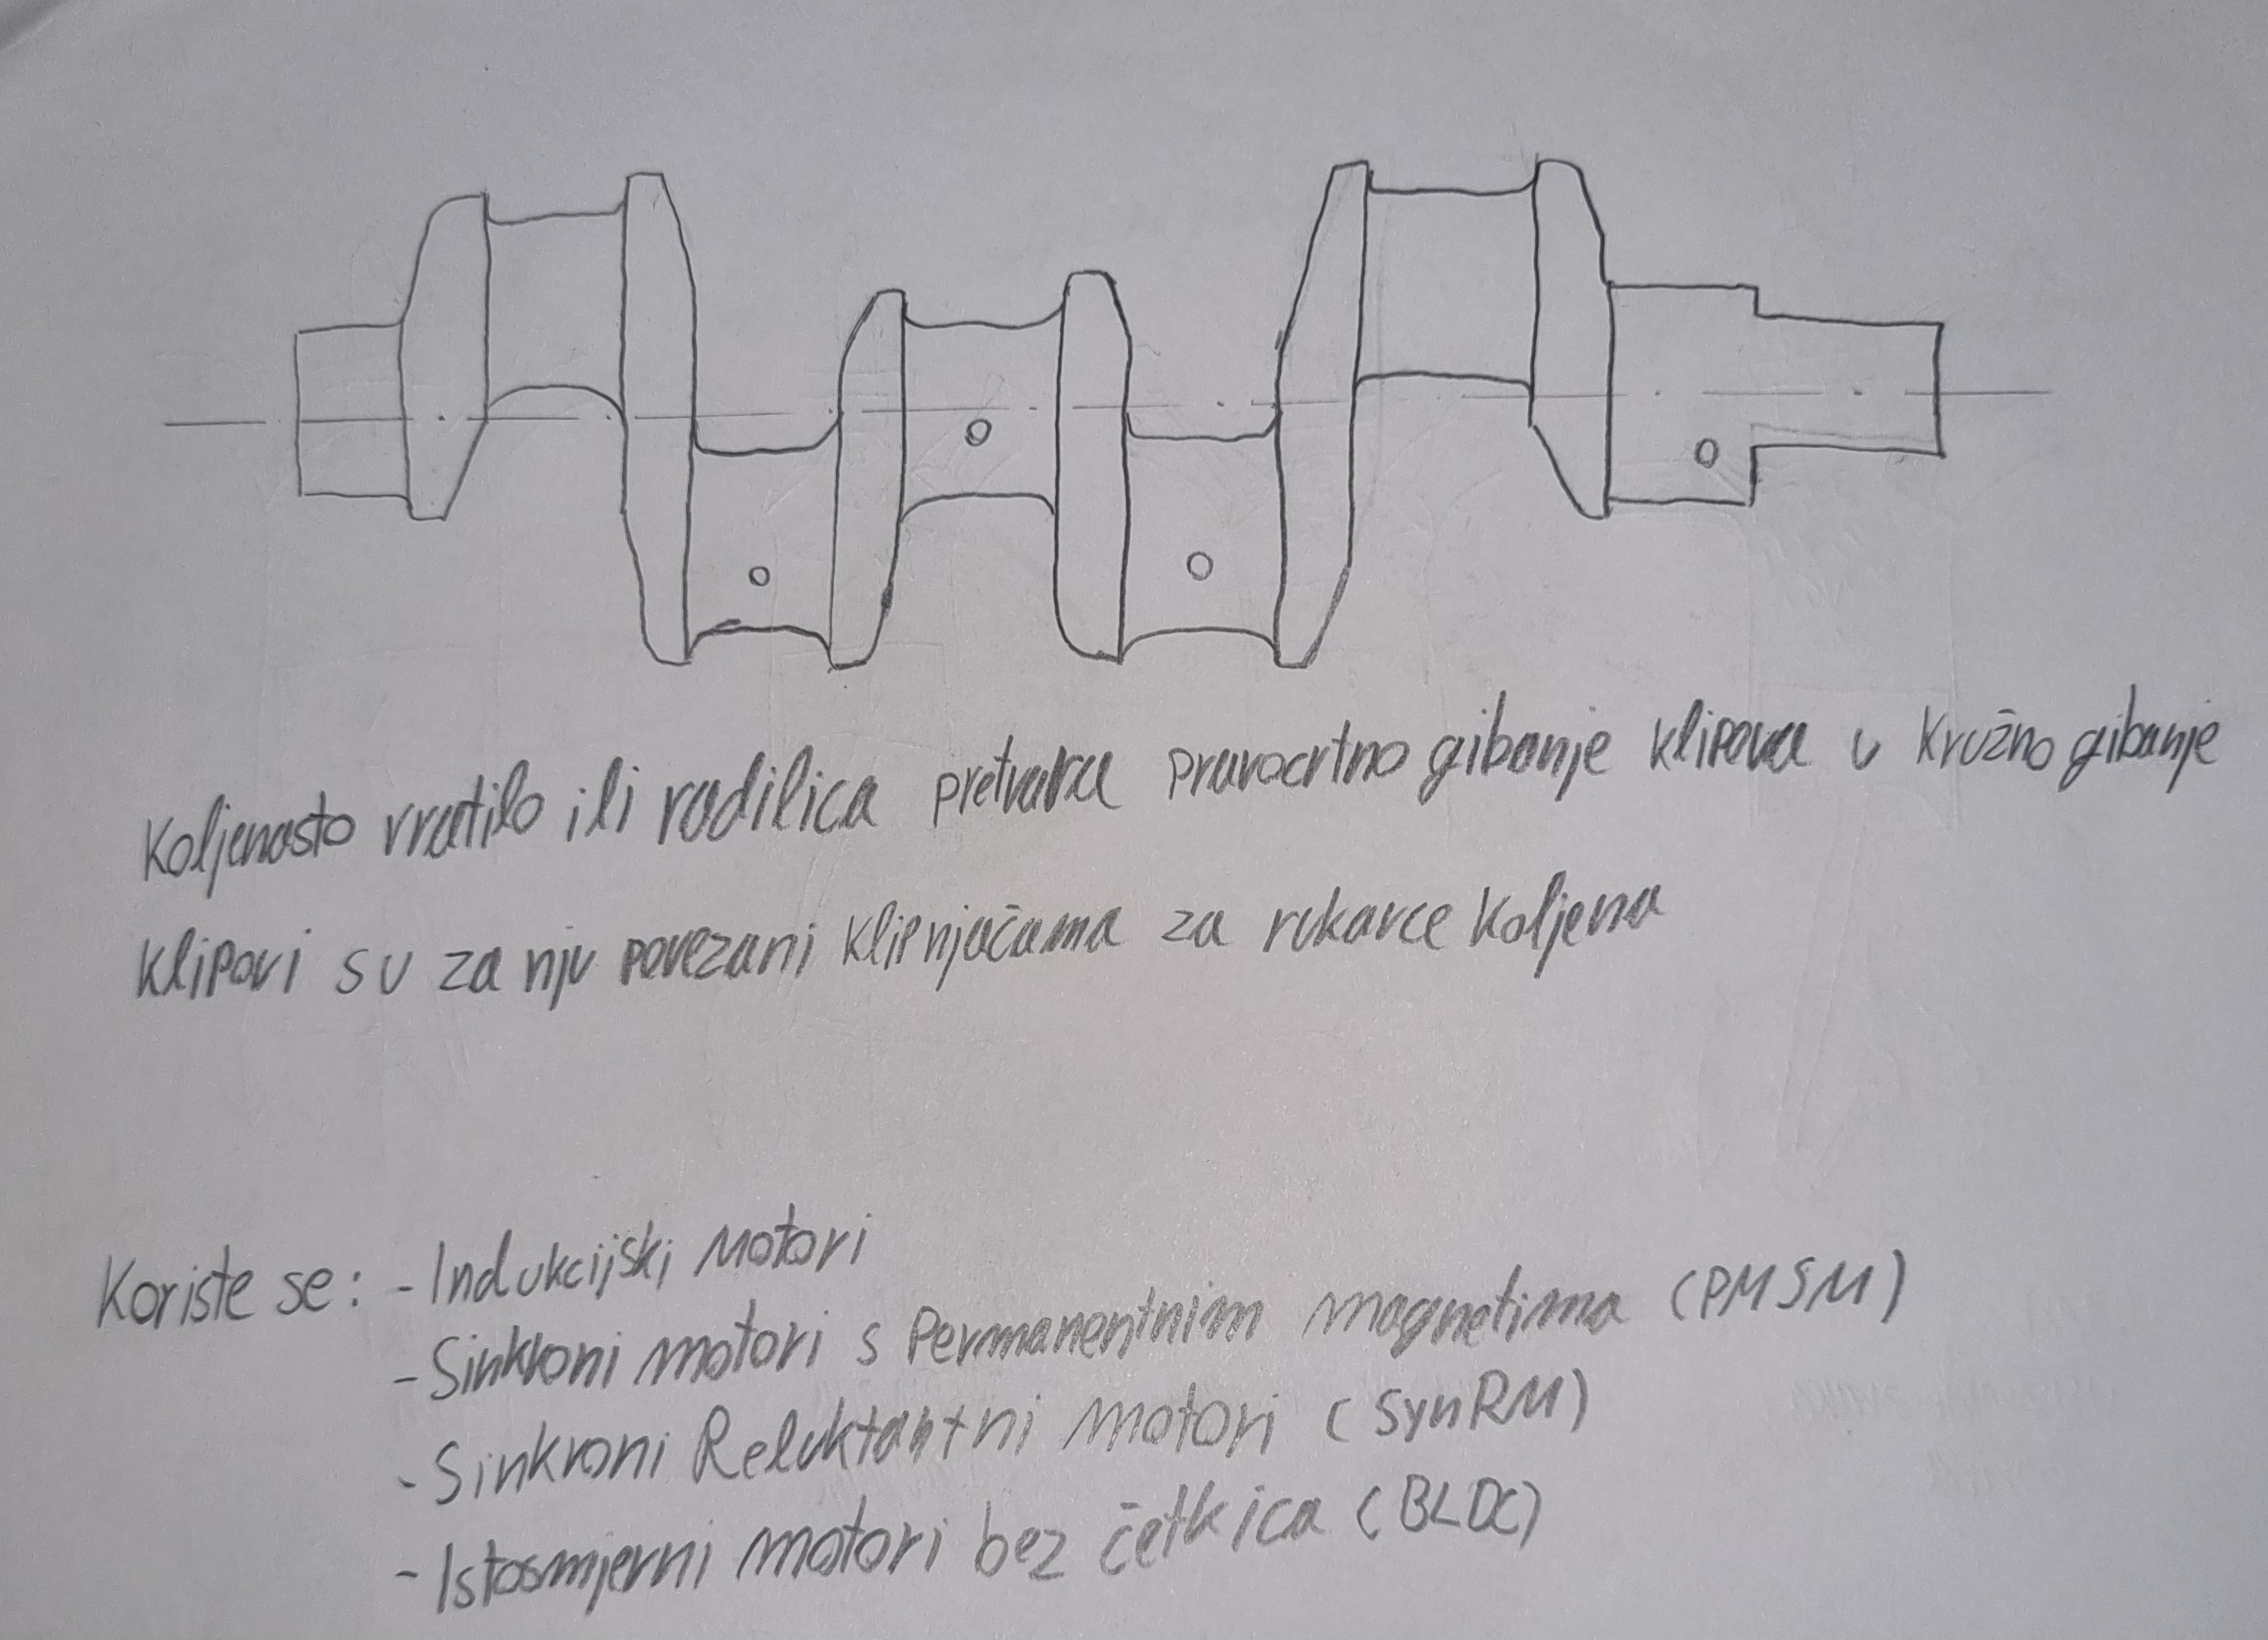 Koljenasto vratilo ili radilica pretvara pravocrtno gibanje klipova u kružno gibanje
Klipovi su za nju povezani klipnjačama za rukavce koljena
Koriste se: - Indukcijski motori
- Sinkroni motori s Permanentnim magnetima (PMSM)
- Sinkroni Reluktantni motori (SynRM)
- Istosmjerni motori bez četkica (BLDC)